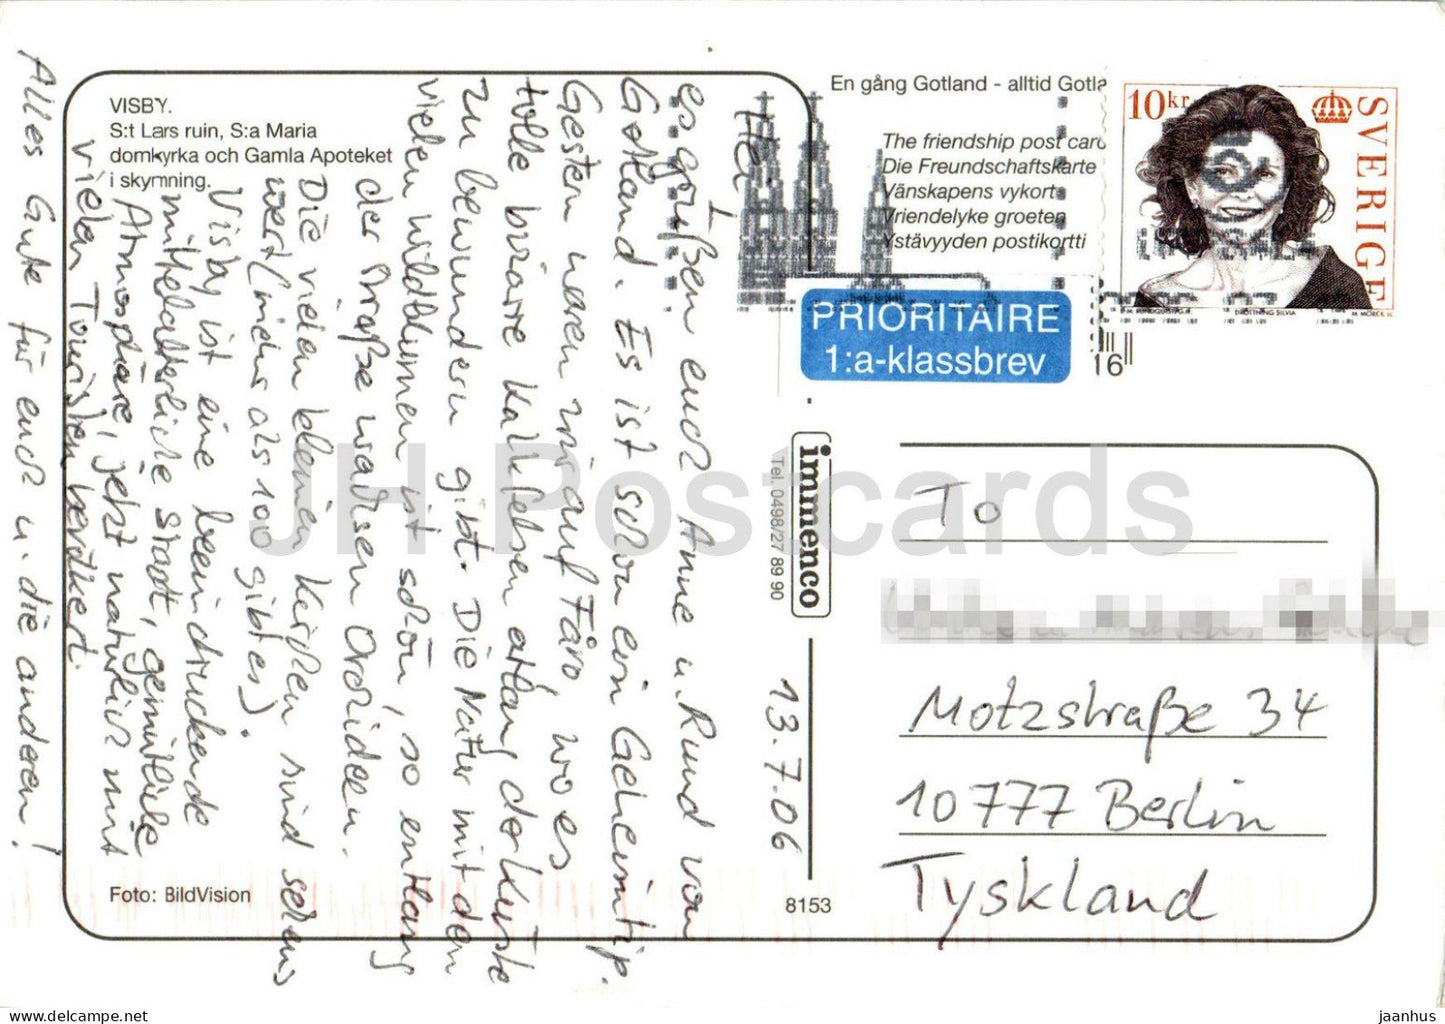 VISBY.
S:t Lars ruin, S:a Maria
domkyrka och Gamla Apoteket
i skymning.
Foto: BildVision
En gång Gotland - alltid Gotla
The friendship post card
Die Freundschaftskarte
Vänskapens vykort
Vriendelyke groeten
Ystävyyden postikortti
10 kr
SVERIGE
DROTTNING SILVIA
M. MÖRCK
PRIORITAIRE
1:a-klassbrev
16
immenco
Tel. 0498/27 89 90
8153
13.7.06
es grüßen euch Anne u. Rund von
Gotland. Es ist schon ein Geheimtip.
Gestern waren wir auf Fårö, wo es
tolle bizarre Kalkfelsen entlang der Küste
zu bewundern gibt. Die Natur mit den
vielen Wildblumen ist schön, so entlang
der Straße wachsen Orchideen.
Die vielen kleinen Kirchen sind sehens
wert (mehr als 100 gibt es).
Visby ist eine beeindruckende
mittelalterliche Stadt, gemütliche
Atmosphäre, jetzt natürlich mit
vielen Touristen bevölkert.
Alles Gute für euch u. die anderen!
To
Motzstraße 34
10777 Berlin
Tyskland
JH Postcards
jaanhus